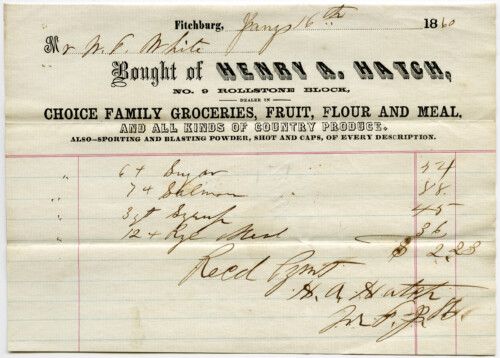 Fitchburg, Jany 16th 1860
Mr W. F. White
Bought of HENRY A. HATCH,
NO. 9 ROLLSTONE BLOCK,
DEALER IN
CHOICE FAMILY GROCERIES, FRUIT, FLOUR AND MEAL,
AND ALL KINDS OF COUNTRY PRODUCE.
ALSO—SPORTING AND BLASTING POWDER, SHOT AND CAPS, OF EVERY DESCRIPTION.
" 6 Sugar 54
" 7 Salmon " 88
" 3 qt Syrup 45
" 12 Rye Meal 36
$ 2,23
Recd Pymt
H. A. Hatch